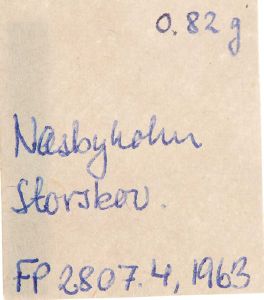 0.82 g
Næsbyholm
Storskov.
FP 2807.4, 1963